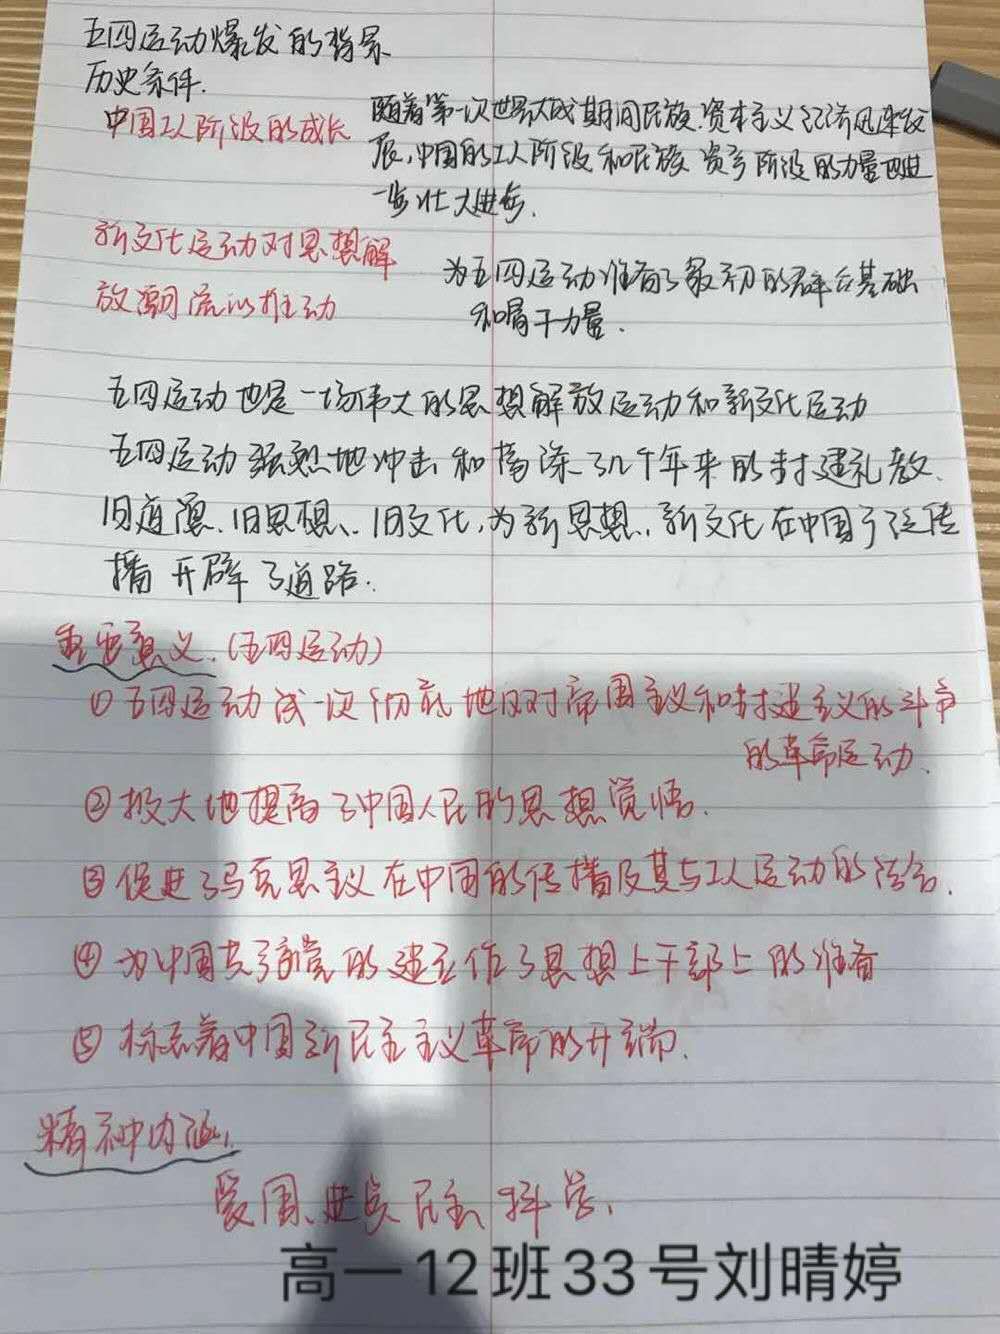 五四运动爆发的背景
历史条件.
中国工人阶级的成长
随着第一次世界大战期间民族.资本主义经济迅速发
展,中国的工人阶级和民族 资产阶级的力量也进
一步壮大进步.
新文化运动对思想解
放潮流的推动
为五四运动准备了最初的群众基础
和骨干力量.
五四运动也是一场伟大的思想解放运动和新文化运动
五四运动强烈地冲击和荡涤了几千年来的封建礼教、
旧道德、旧思想、旧文化,为新思想、新文化在中国广泛传
播开辟了道路.
重要意义.(五四运动)
①五四运动 一次彻底地反对帝国主义和封建主义的斗争
的革命运动.
②极大地提高了中国人民的思想觉悟.
③促进了马克思主义在中国的传播及其与工人运动的结合.
④为中国共产党的建立作了思想上干部上的准备
⑤标志着中国新民主主义革命的开端.
精神内涵,
爱国、进步 民主、科学、
高一12班33号刘晴婷